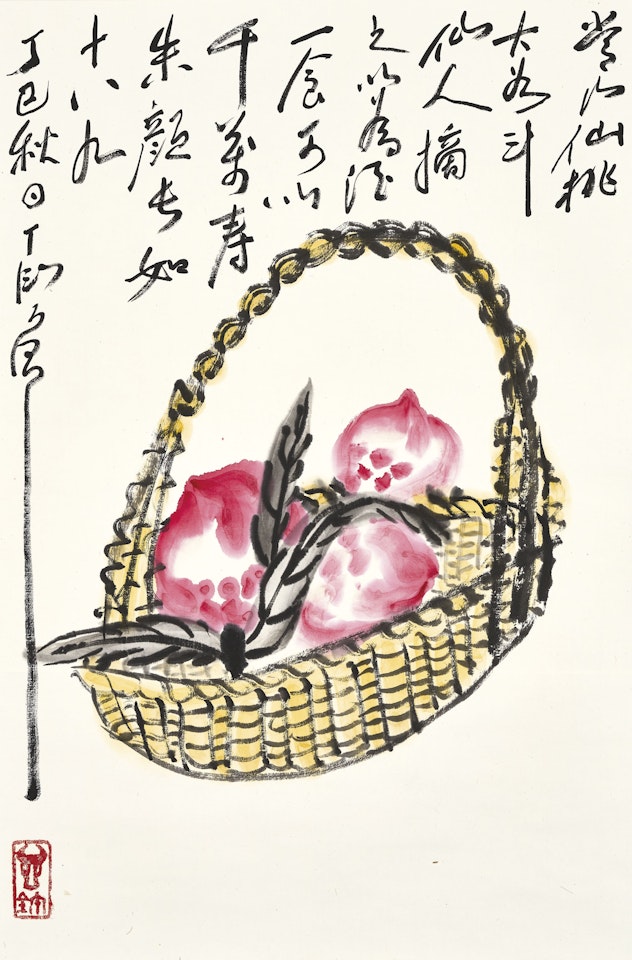 仙桃
大如斗
仙人摘
之以為酒
一食可以
千萬壽
朱顏長如
十八九
丁巳秋日丁衍庸